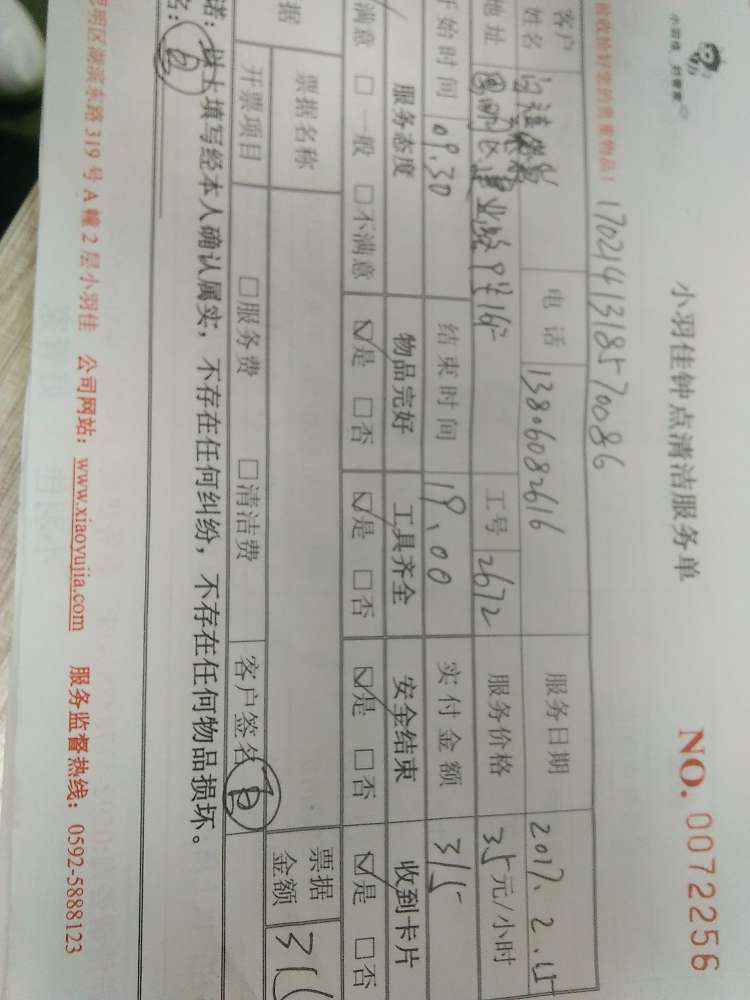 小羽佳 好管家
小羽佳钟点清洁服务单
NO. 0072256
您收拾好您的贵重物品！
1702141318570086
客户姓名 电话 13806082616 服务日期 2017.2.15
地址 工号 2672 服务价格 35元/小时
开始时间 09.30 结束时间 19.00 实付金额 315
服务态度 物品完好 工具齐全 安全结束 收到卡片
满意 □一般 □不满意 ☑是 □否 ☑是 □否 ☑是 □否 ☑是 □否
据 票据名称 票据金额
开票项目 □服务费 □清洁费 客户签名
诺：以上填写经本人确认属实，不存在任何纠纷，不存在任何物品损坏。
名：
思明区湖滨东路319号A幢2层小羽佳 公司网站：www.xiaoyujia.com 服务监督热线：0592-5888123